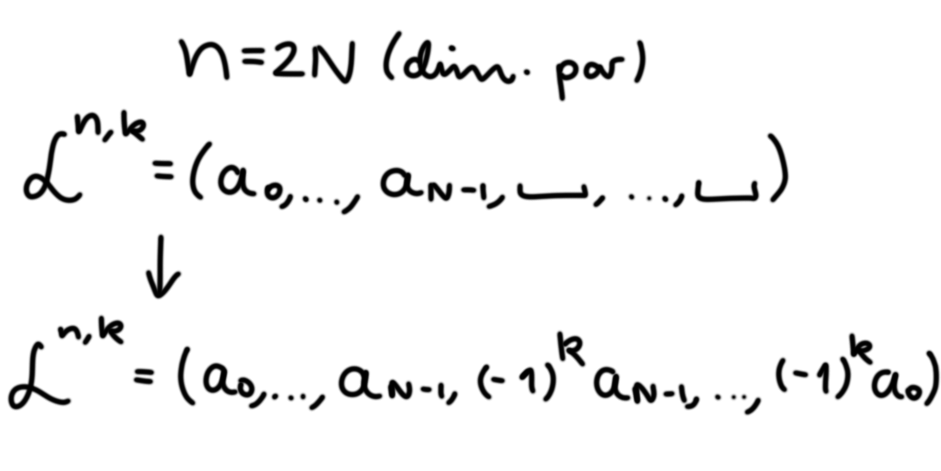 n=2N (dim. par)
ℒ^{n,k} = (a_0,..., a_{N-1}, ⎵, ..., ⎵)
↓
ℒ^{n,k} = (a_0,..., a_{N-1}, (-1)^k a_{N-1}, ..., (-1)^k a_0)